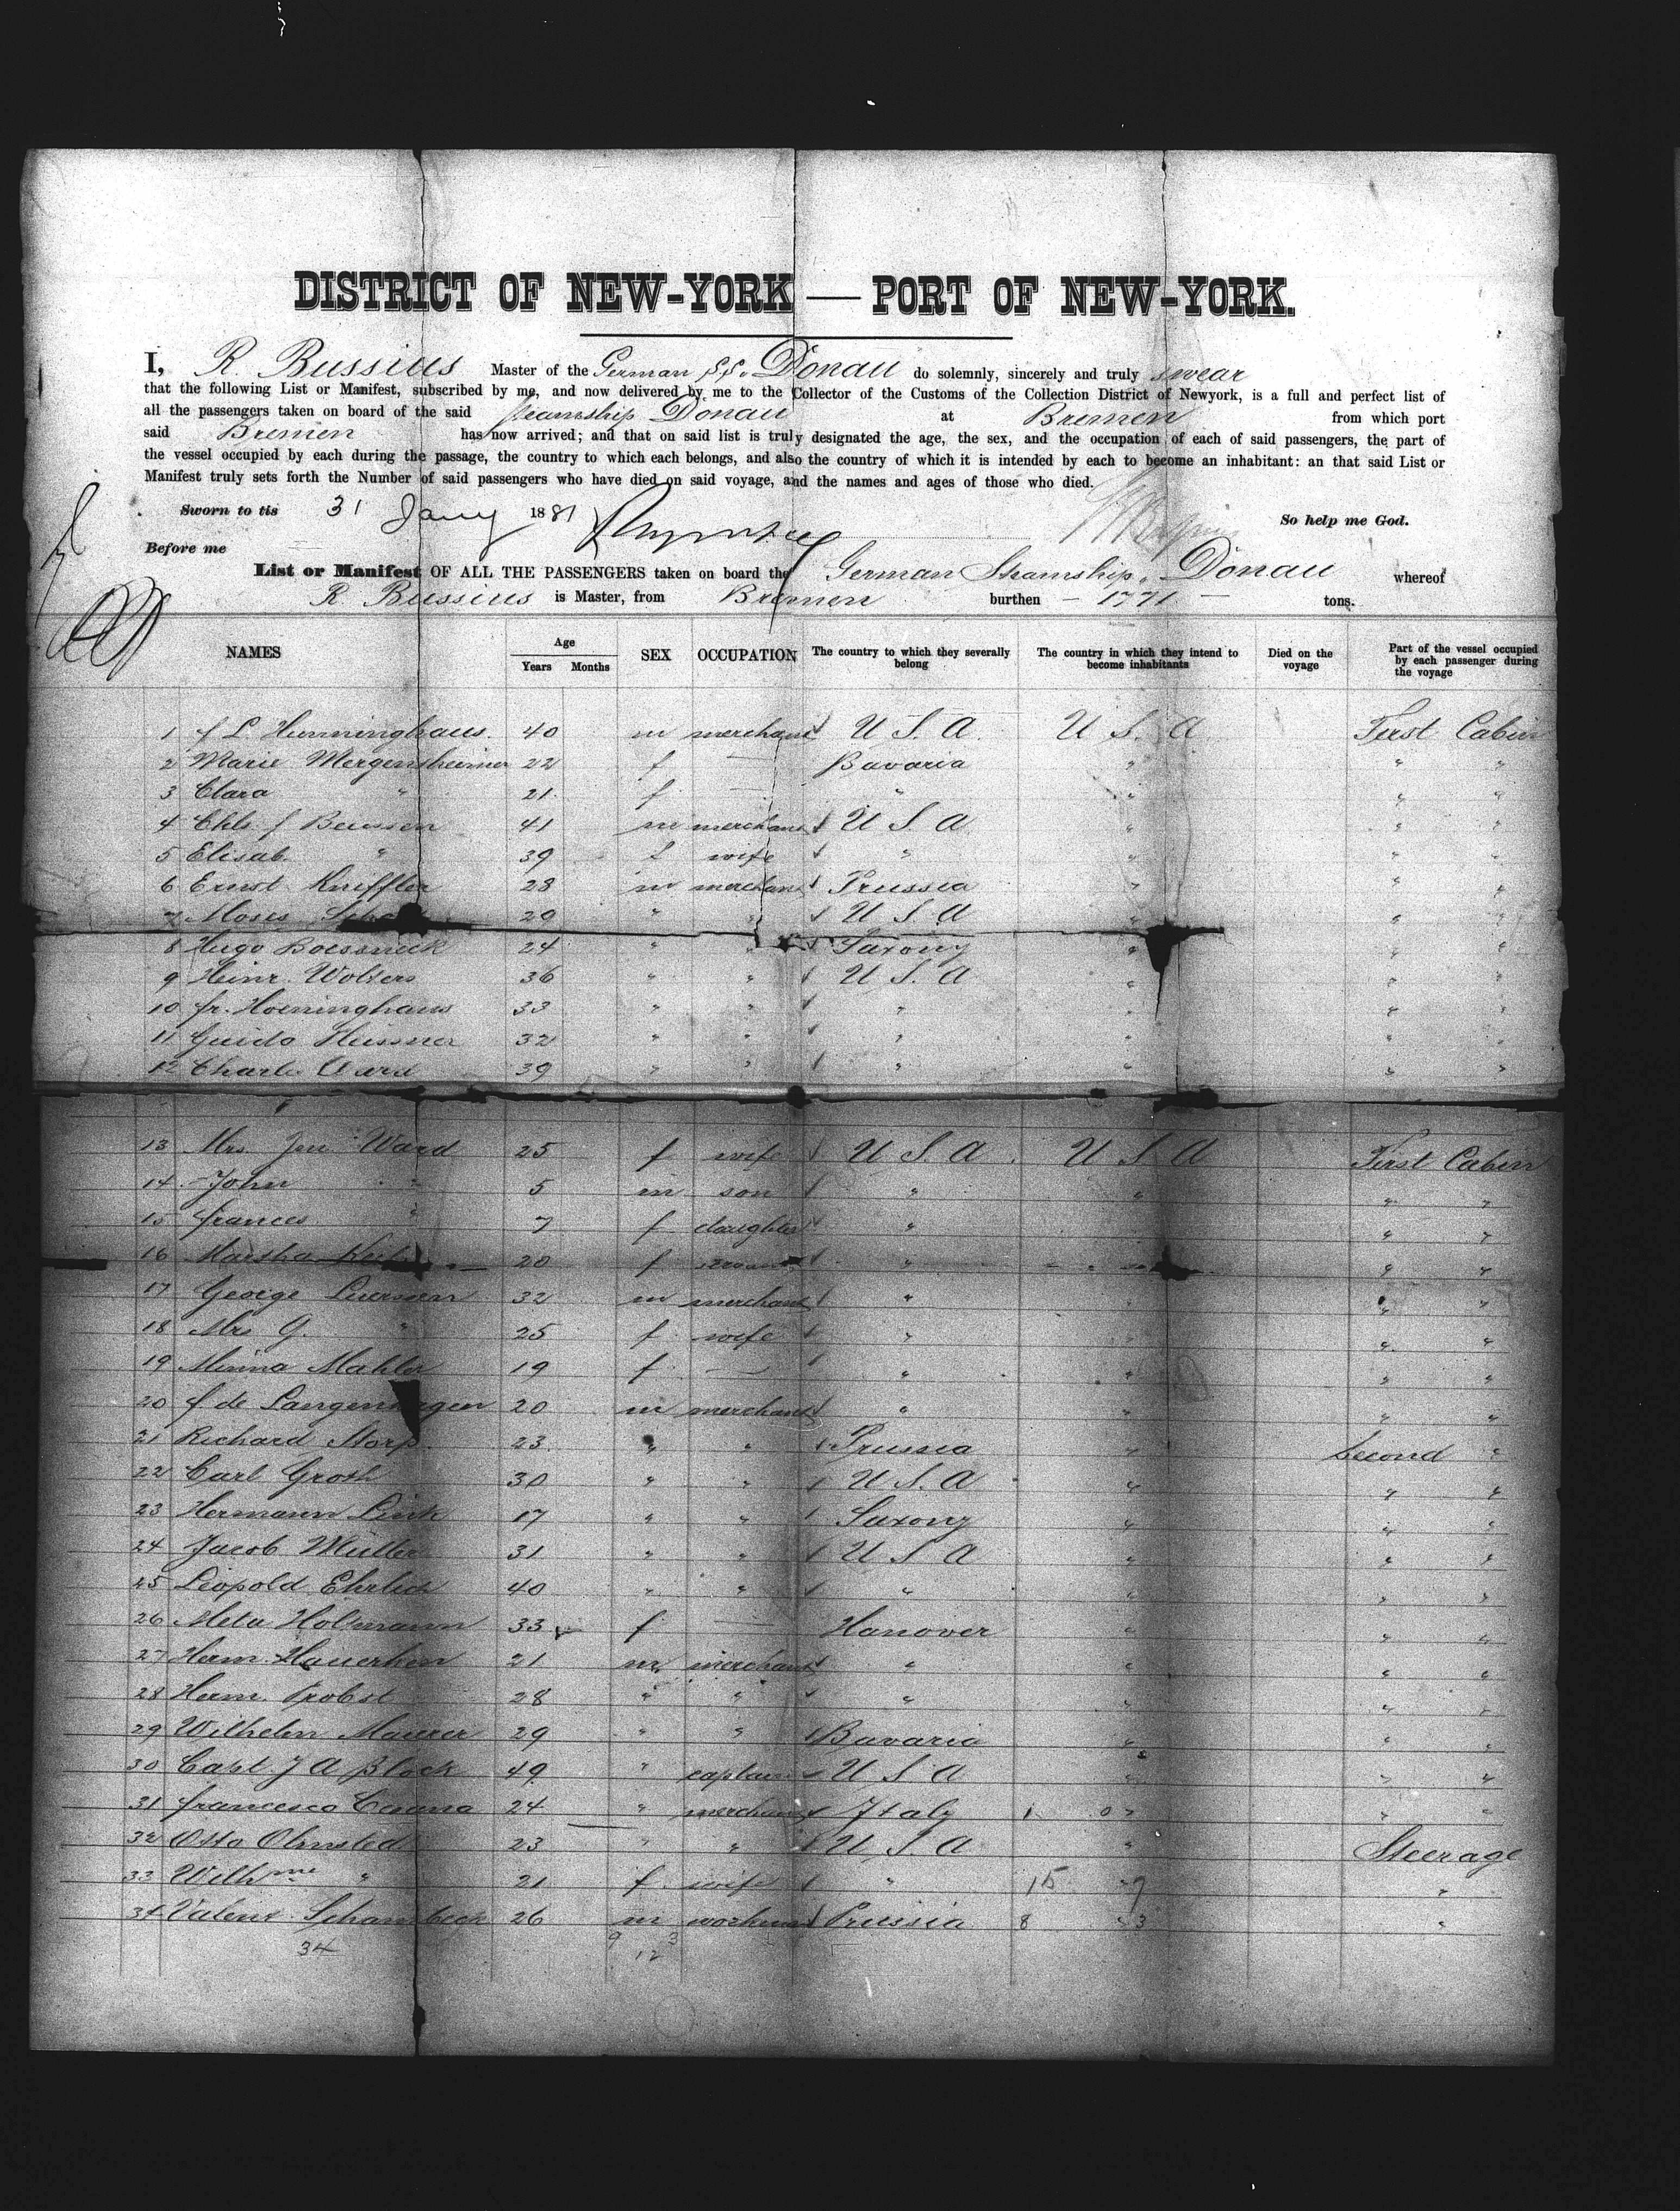 DISTRICT OF NEW-YORK — PORT OF NEW-YORK.
I, R. Bussius Master of the German SS. Donau do solemnly, sincerely and truly swear
that the following List or Manifest, subscribed by me, and now delivered by me to the Collector of the Customs of the Collection District of Newyork, is a full and perfect list of
all the passengers taken on board of the said steamship Donau at Bremen from which port
said Bremen has now arrived; and that on said list is truly designated the age, the sex, and the occupation of each of said passengers, the part of
the vessel occupied by each during the passage, the country to which each belongs, and also the country of which it is intended by each to become an inhabitant: an that said List or
Manifest truly sets forth the Number of said passengers who have died on said voyage, and the names and ages of those who died.
Sworn to tis 31 Jany 1881 So help me God.
Before me
List or Manifest OF ALL THE PASSENGERS taken on board the German Steamship „ Donau whereof
R Bussius is Master, from Bremen burthen — 1771 — tons.
NAMES Age Years Months SEX OCCUPATION The country to which they severally belong The country in which they intend to become inhabitants Died on the voyage Part of the vessel occupied by each passenger during the voyage
1 f L Hunninghaus. 40 m merchant U S. A. U S. A First Cabin
2 Marie Mergentheimer 22 f — Bavaria " " "
3 Clara " 21 f — " " " "
4 Chls. f 41 m merchant U S. A " " "
5 Elisab. " 39 f wife " " " "
6 Ernst Kniffler 28 m merchant Prussia " " "
7 Moses 29 " " U S. A " " "
8 Hugo Boessneck 24 " " Saxony " " "
9 Heinr. Wolters 36 " " U S. A " " "
10 fr. Hoeninghaus 33 " " " " " "
11 Guido Meissner 32 " " " " " "
12 Charles Ward 39 " " " " " "
13 Mrs. Jen Ward 25 f wife U S. A. U S A First Cabin
14 John " 5 m son " " " "
15 frances " 7 f daughter " " " "
16 Martha 20 f servant " " " "
17 George Luerssen 32 m merchant " " " "
18 Mrs G. " 25 f wife " " " "
19 Minna Mahler 19 f — " " " "
20 f de Langenhagen 20 m merchant " " " "
21 Richard Storp. 23 " " Prussia " Second "
22 Carl Groth 30 " " U S. A " " "
23 Hermann Link 17 " " Saxony " " "
24 Jacob Müller 31 " " U S A " " "
25 Leopold Ehrlich 40 " " " " " "
26 Meta Holsmann 33 f — Hanover " " "
27 Herm. Hauerken 21 m merchant " " " "
28 Herm. Probst 28 " " " " " "
29 Wilhelm Maurer 29 " " Bavaria " " "
30 Capt. J A Block 49 " captain U S A " " "
31 francesco 24 " merchant Italy 1 0 " " "
32 Otto Olmsted 23 " " U. S. A " Steerage
33 Wilhme " 21 f wife " 15 " 7 "
34 Valent. Schambeck 26 m workman Prussia 8 " 3 "
34 9 3
12